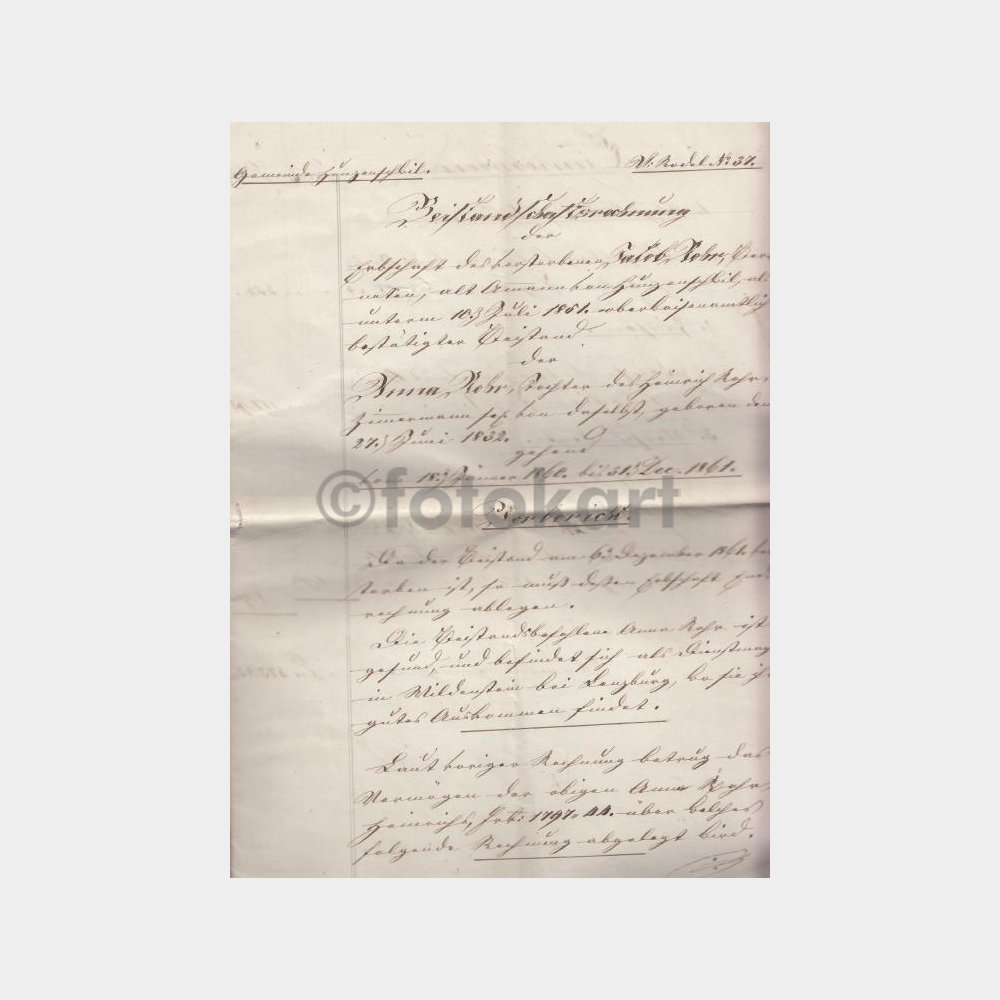 Gemeinde Hunzenschwil. V. Rodel No 37.
Beistandschaftsrechnung
der
Erbschaft des verstorbenen Jacob Rohr,
alt Amann von Hunzenschwil, als
unterm 10. Juli 1851. oberwaisenamtlich
bestätigter Beistand
der
Anna Rohr, Tochter des Heinrich Rohr,
Zimmermann sel. von daselbst, geboren den
27. Juni 1832.
gehend
vom 18. Jänner 1860. bis 31. Dec. 1861.
©fotokart
Vorbericht.
Da der Beistand am 6. Dezember 1861. ver
storben ist, so muß dessen Erbschaft
rechnung ablegen.
Die Beistandsbefohlene Anna Rohr ist
gesund, und befindet sich als Dienstmagd
in Wildenstein bei Lenzburg, wo sie ihr
gutes Auskommen findet.
Laut voriger Rechnung betrug das
Vermögen der obigen Anna Rohr,
Heinrichs, Frk: 1797. 44. über welches
folgende Rechnung abgelegt wird.